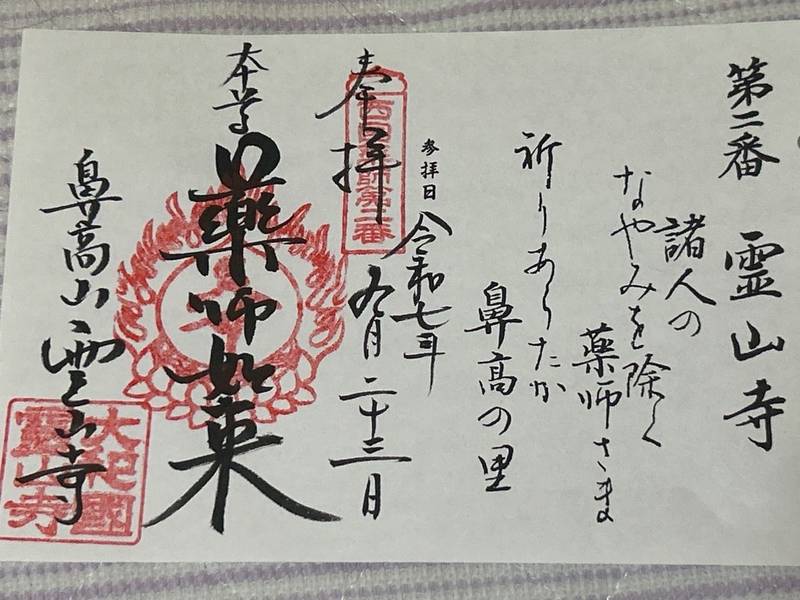 第二番 霊山寺
諸人の
なやみを除く
薬師さま
祈りあらたか
鼻高の里
奉拝
西国薬師第二番
参拝日 令和七年
九月二十三日
本尊
薬師如来
鼻高山 霊山寺
大和國
霊山寺